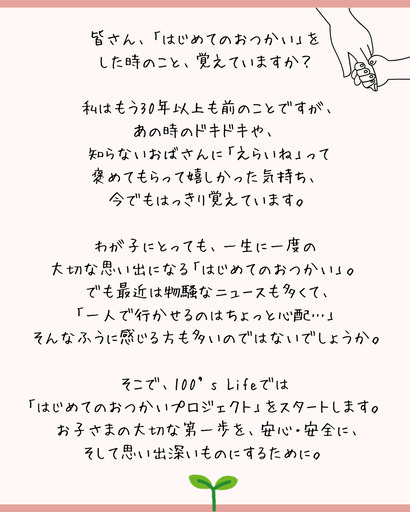 皆さん、「はじめてのおつかい」を
した時のこと、覚えていますか？
私はもう30年以上も前のことですが、
あの時のドキドキや、
知らないおばさんに「えらいね」って
褒めてもらって嬉しかった気持ち、
今でもはっきり覚えています。
わが子にとっても、一生に一度の
大切な思い出になる「はじめてのおつかい」。
でも最近は物騒なニュースも多くて、
「一人で行かせるのはちょっと心配…」
そんなふうに感じる方も多いのではないでしょうか。
そこで、100’s Lifeでは
「はじめてのおつかいプロジェクト」をスタートします。
お子さまの大切な第一歩を、安心・安全に、
そして思い出深いものにするために。